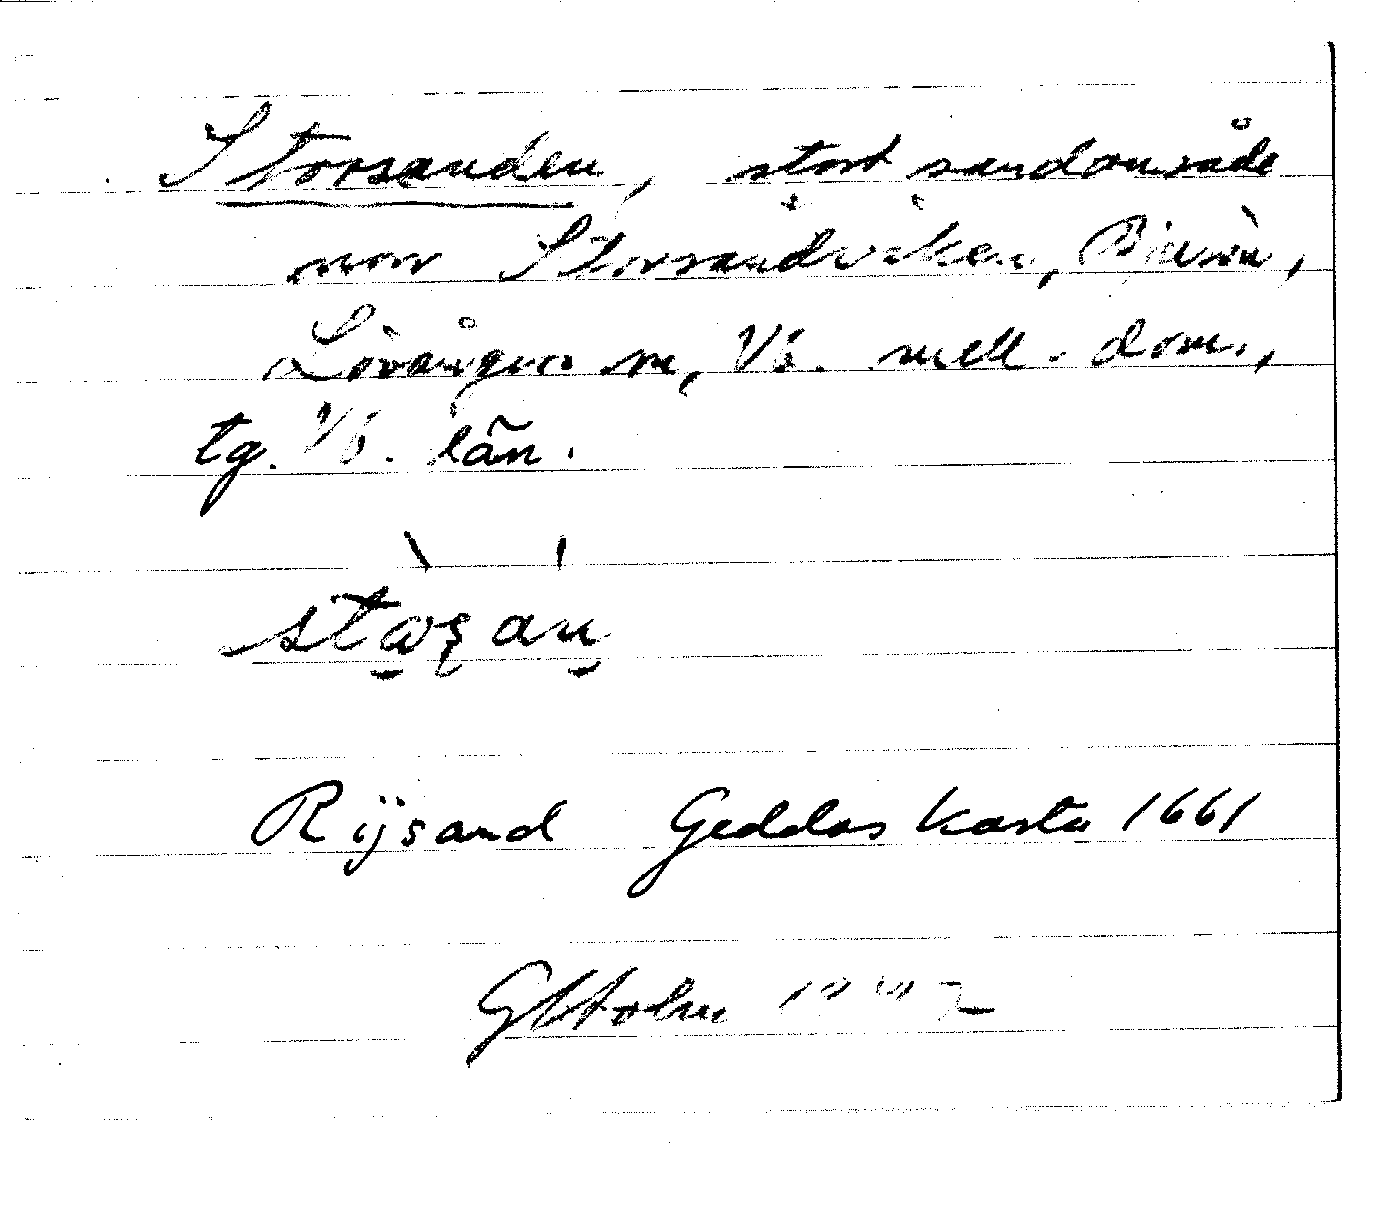 Storsanden, stort sandområde
norr Storsandviken, Bjurön,
Lövångers sn, Vb. mell. dom.,
tg. Vb. län.
Rÿsand Geddas karta 1661
GHolm 1942